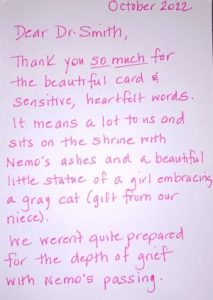 October 2022
Dear Dr. Smith,
Thank you so much for
the beautiful card &
sensitive, heartfelt words.
It means a lot to us and
sits on the shrine with
Nemo's ashes and a beautiful
little statue of a girl embracing
a gray cat (gift from our
niece).
We weren't quite prepared
for the depth of grief
with Nemo's passing.